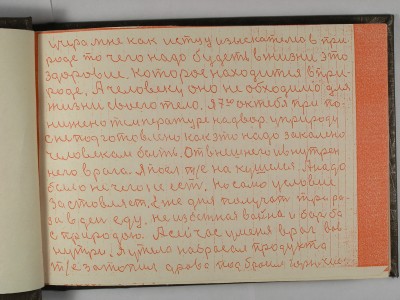 вчера мне как истцу изыскателю в при
роде то чего надо будеть в жизни это
здоровие. Которое находится в при
роде. А человеку оно не обходимо для
жизни своего тела. Я 7го октября при по
нижено температуре на двор у природу
с не подготовлено как это надо закалено
человекам быть. От внешнего и внутрен
него врага. Я писал т/е на кушился. А надо
было не чего не есть. Но само условие
заставляет. С же дня получать три ра
за в ден еду. не избенная вайна и барба
с природою. А сейчас у меня враг вов
нутри. Я утило набрасал продукта
т/е затопил дрова под броил